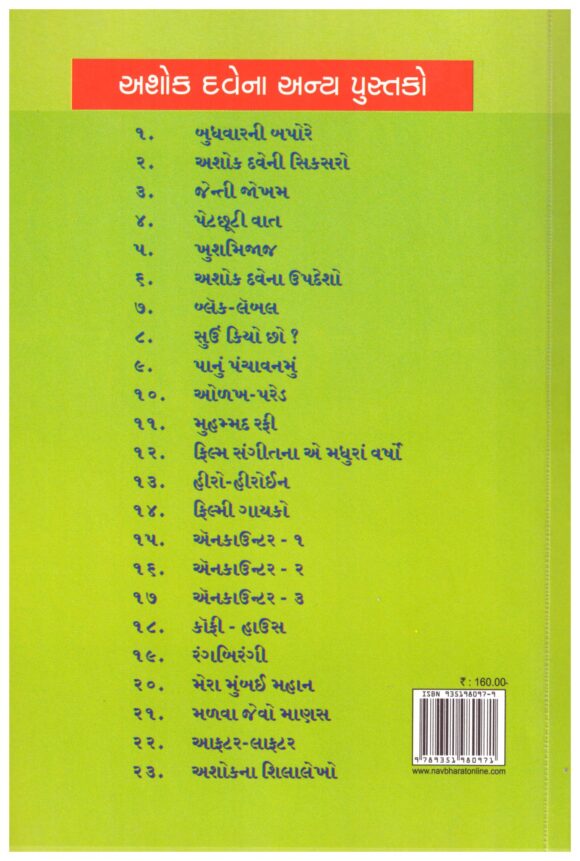 અશોક દવેના અન્ય પુસ્તકો
૧. બુધવારની બપોરે
૨. અશોક દવેની સિકસરો
૩. જેન્તી જોખમ
૪. પેટછૂટી વાત
૫. ખુશમિજાજ
૬. અશોક દવેના ઉપદેશો
૭. બ્લૅક-લૅબલ
૮. સુઉં કિયો છો ?
૯. પાનું પંચાવનમું
૧૦. ઓળખ-પરેડ
૧૧. મુહમ્મદ રફી
૧૨. ફિલ્મ સંગીતના એ મધુરાં વર્ષો
૧૩. હીરો-હીરોઈન
૧૪. ફિલ્મી ગાયકો
૧૫. ઍનકાઉન્ટર - ૧
૧૬. ઍનકાઉન્ટર - ૨
૧૭ ઍનકાઉન્ટર - ૩
૧૮. કૉફી - હાઉસ
૧૯. રંગબિરંગી
૨૦. મેરા મુંબઈ મહાન
૨૧. મળવા જેવો માણસ
૨૨. આફટર-લાફટર
૨૩. અશોકના શિલાલેખો
₹ : 160.00-
ISBN 935198097-9
9 789351 980971
www.navbharatonline.com